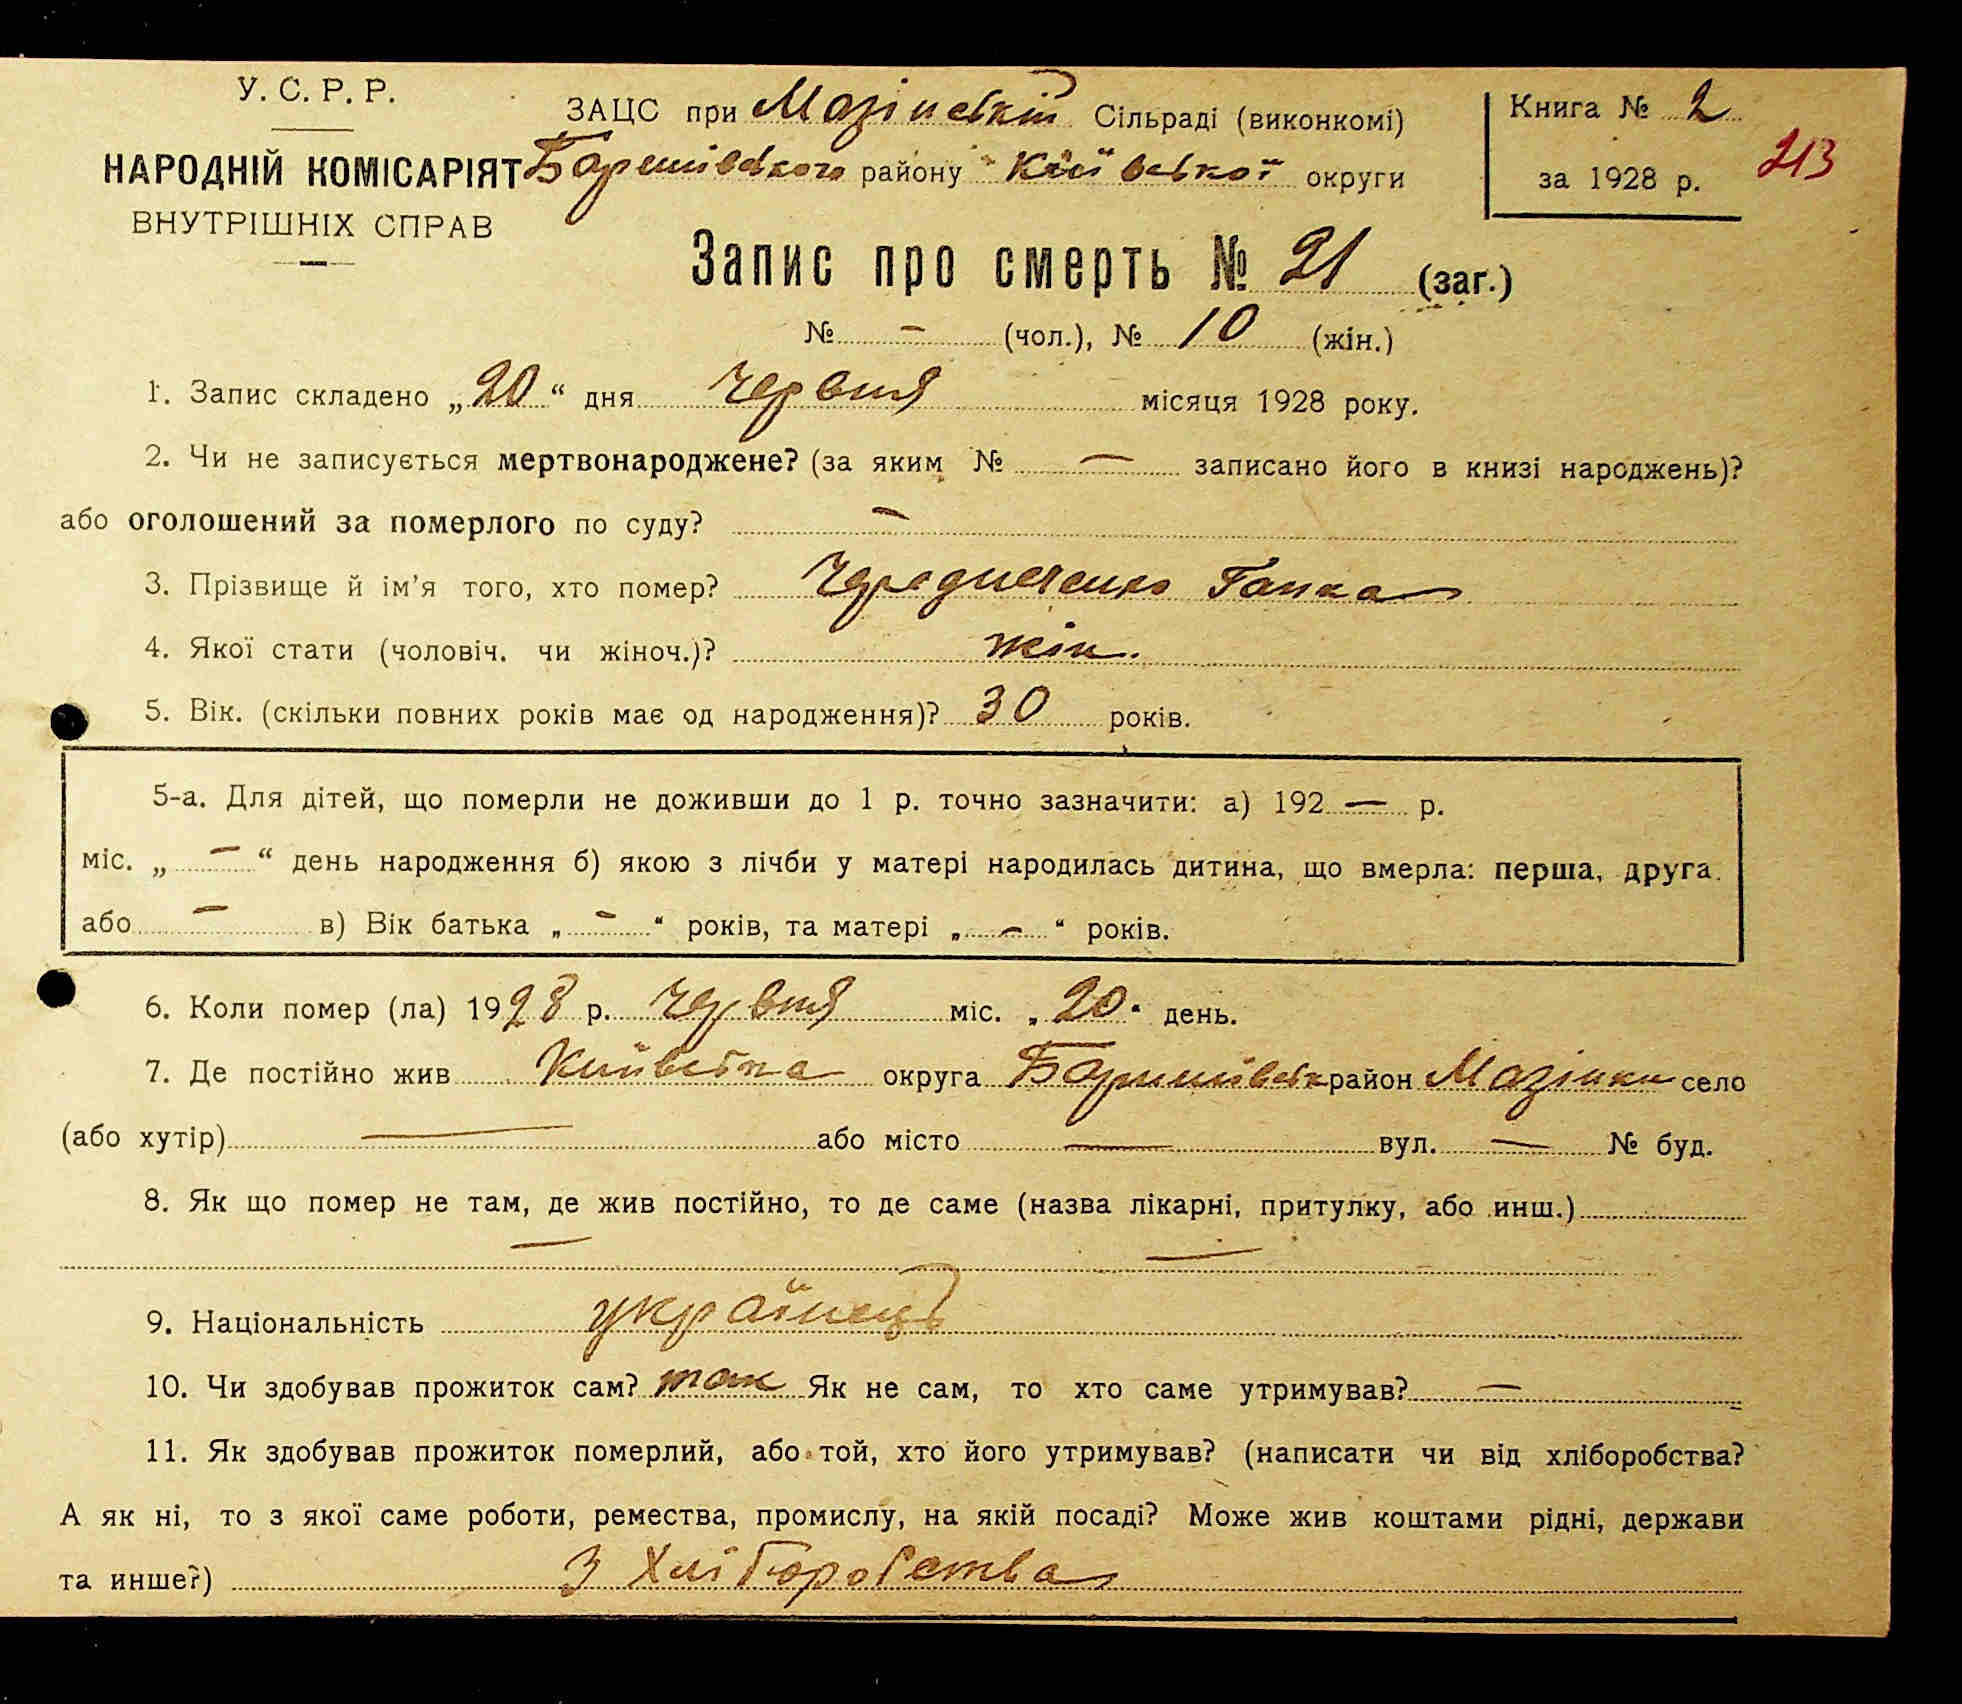 У. С. Р. Р.
НАРОДНІЙ КОМІСАРІЯТ
ВНУТРІШНІХ СПРАВ
ЗАЦС при Мазінській Сільраді (виконкомі)
Баришівського району Київської округи
Книга № 2
за 1928 р.
213
Запис про смерть № 21 (заг.)
№ — (чол.), № 10 (жін.)
1. Запис складено „20“ дня червня місяця 1928 року.
2. Чи не записується мертвонароджене? (за яким № — записано його в книзі народжень)?
або оголошений за померлого по суду? —
3. Прізвище й ім’я того, хто помер? Чередниченко Ганка
4. Якої стати (чоловіч. чи жіноч.)? жін.
5. Вік. (скільки повних років має од народження)? 30 років.
5-а. Для дітей, що померли не доживши до 1 р. точно зазначити: а) 192 — р.
міс. „ — “ день народження б) якою з лічби у матері народилась дитина, що вмерла: перша, друга.
або — в) Вік батька „ — “ років, та матері „ — “ років.
6. Коли помер (ла) 1928 р. червня міс. „20“ день.
7. Де постійно жив Київська округа Баришівськ район Мазінки село
(або хутір) — або місто — вул. — № буд.
8. Як що помер не там, де жив постійно, то де саме (назва лікарні, притулку, або инш.)
— —
9. Національність українець
10. Чи здобував прожиток сам? так Як не сам, то хто саме утримував? —
11. Як здобував прожиток померлий, або той, хто його утримував? (написати чи від хліборобства?
А як ні, то з якої саме роботи, ремества, промислу, на якій посаді? Може жив коштами рідні, держави
та инше?) З Хліборобства